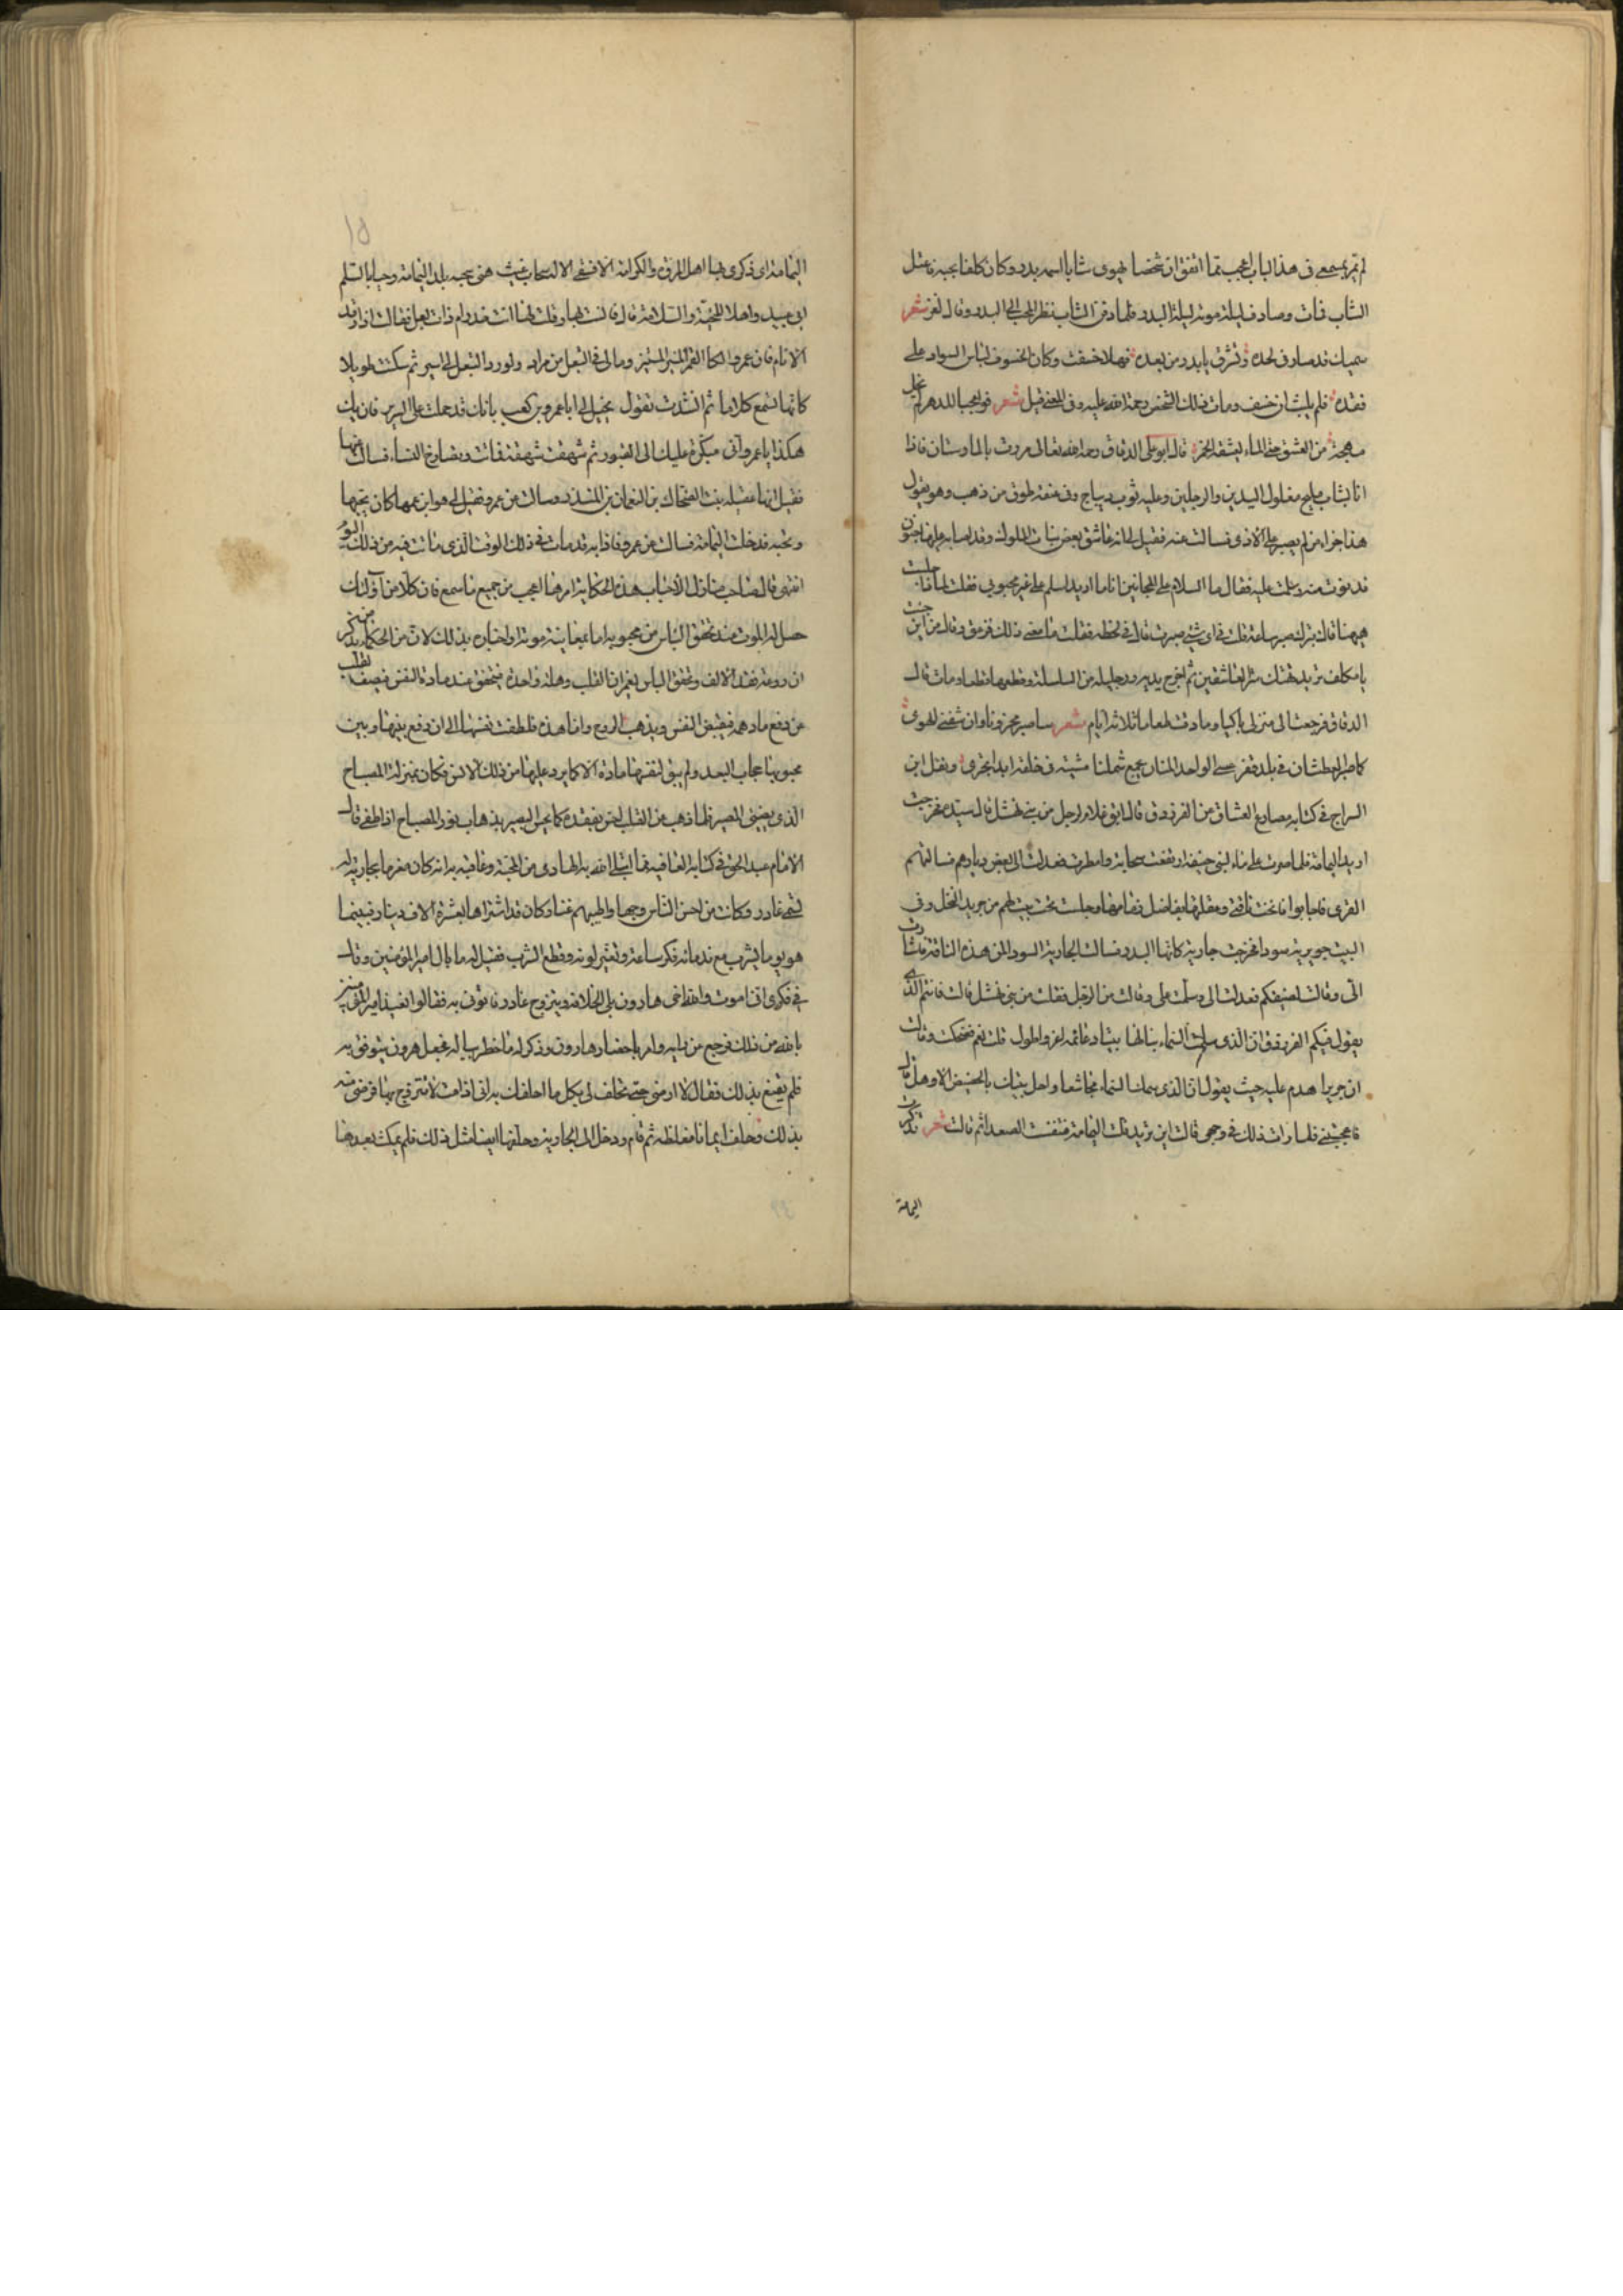 لم تمر بسمعي في هذا الباب اعجب مما اتفق ان شخصا يهوى شابا اسمه بدر وكان كلفا بحبه فاعتل
الشاب فمات وصادف ليلة موته ليلة البدر فلما دفن الشاب نظر المحب الى البدر وقال لغز شعر
سميك قد صار في لحده وتشرق يا بدر من بعده فهلا خسفت وكان الخسوف لباس السواد على
فقده فلم يلبث ان خسف ومات ذلك الشخص رحمة الله عليه وفي المعنى قيل شعر فوا عجبا للدهر لم يخل
مهجة من العشق حتى الماء يعشقه الخمر قال ابو علي الدقاق رحمه الله تعالى مررت بالمارستان فاذا
انا بشاب مليح مغلول اليدين والرجلين وعليه ثوب ديباج وفي عنقه طوق من ذهب وهو يقول
هذا جزاء من لم يصبر على الاذى فسالت عنه فقيل لي انه عاشق بعض بنات الملوك وقد اصابه عليها جنون
فدنوت منه وسلمت عليه فقال ما السلام على المجانين انا ما اريد اسلم على غير محبوبي فقلت لما ذا جلست
ههنا قال بترك صبر ساعة قلت في اي شي صبرت قال في لحظه فقلت ما معنى ذلك فزعق وقال من اين جئت
يا مكلف تريد هتك ستر العاشقين ثم اخرج يديه ورجليه من السلسلة وقطعها قطعا ومات قال
الدقاق فرجعت الى منزلي باكيا وما ذقت طعاما ثلاثة ايام شعر ساصبر محزونا وان شفني الهوى
كما صبر العطشان في بلد قفر عسى الواحد المنان يجمع شملنا مشيته في خلقه ابدا تجري ونقل ابن
السراج في كتابه مصارع العشاق عن الفرزدق قال ابق غلام لرجل من بني نهشل قال سيده فخرجت
اريد اليمامة فلما صرت على ماء لبني حنيفة ارتفعت سحابة وامطرت فعدلت الى بعض ديارهم فسالتهم
القرى فاجابوا فانخت ناقتي وعقلتها وجلست تحت بيت لهم من جريد النخل وفي
البيت جويرية سودا فخرجت جارية كانها البدر فسالت الجارية السودا لمن هذه الناقة فاشارت
الي وقالت لضيفكم فعدلت الي وسلمت علي وقالت من الرجل فقلت من بني نهشل قالت فانتم الذي
يقول فيكم الفرزدق ان الذي سمك السماء بنى لها بيتا دعائمه اعز واطول قلت نعم فضحكت وقالت
ان جريرا هدم عليه حيث يقول ان الذي سمك السماء مجاشعا واحل بيتك بالحضيض الاوهل قال
فاعجبتني فلما رات ذلك في وجهي قالت اين تريد قلت اليمامة فتنفست الصعدا ثم قالت شعر تذكرت
اليمامة
اليمامة ان ذكرى بها اهل المروة والكرامة الا فسقى الاله سحاب غيث بلد اليمامة وحيا بالسلم
ابو عبيد واهلا للتحية والسلامة قال فانست بها وقلت لها انت خدر ام ذات بعل فقالت اذا رقد
الانام فان عمروا القمر المنير المستنير وما لي في التبعل من مراد ولو رد التبعل لي اسير ثم سكتت طويلا
كانها تسمع كلاما ثم انشدت تقول يخيل لي ايا عمرو بن كعب بانك قد حملت على السرير فان يك
هكذا يا عمرو اني مبكرة عليك الى القبور ثم شهقت شهقة فماتت فسالت عنها
فقيل انها عقيله بنت الضحاك بن النعمان بن المنذر وسالت عن عمرو فقيل لي هو ابن عمها كان يحبها
وتحبه فدخلت اليمامة فسالت عن عمرو فاذا به قد مات في ذلك الوقت الذي ماتت فيه من ذلك اليوم
انتهى قال هذه الحكاية امرها اعجب من جميع ما سمع فان كلا من اولئك
حصل له الموت عند تحقق الياس من محبوبه اما بمعاينة موته او اخباره بذلك لان من الحكماء من ذكر
عن دفع ما دهمه فيقبض النفس ويذهب الروح واما هذه فلطفت نفسها الى ان دفع بينها وبين
محبوبها حجاب البعد ولم يبق لنفسها مادة الا كما يرد عليها من ذلك الانس فكان بمنزلة المصباح
الذي يضئ للبصير فلما ذهب من القلب احس بفقده كما يحس البصير بذهاب نور المصباح اذا طفي قال
الامام عبد الحق في كتابه العاقبه مما ابتلى الله به الهادي من المحنة وعاقبه به انه كان مغرما بجارية له
تسمى غادر وكانت من احسن الناس وجها واطيبهم غنا وكان قد اشتراها بعشرة الاف دينار فبينما
هو يوما يشرب مع ندمانه فكر ساعة وتغير لونه وقطع الشرب فقيل له ما بال امير المؤمنين وقال
في فكري اني اموت وان اخي هارون يلي الخلافة ويتزوج غادر فقالوا نعيذ امير المؤمنين
بالله من ذلك فرجع عن وامر باحضار هارون وذكر له ما خطر بباله فجعل هرون يترفق به
فلم يقنع بذلك فقال لا ارضى حتى تحلف لي بكل ما احلفك به اني اذا مت لا تتزوج بها فرضي منه
بذلك وحلف ايمانا مغلظه ثم قام ودخل الى الجارية وحلفها ايضا مثل ذلك فلم يمكث بعدها